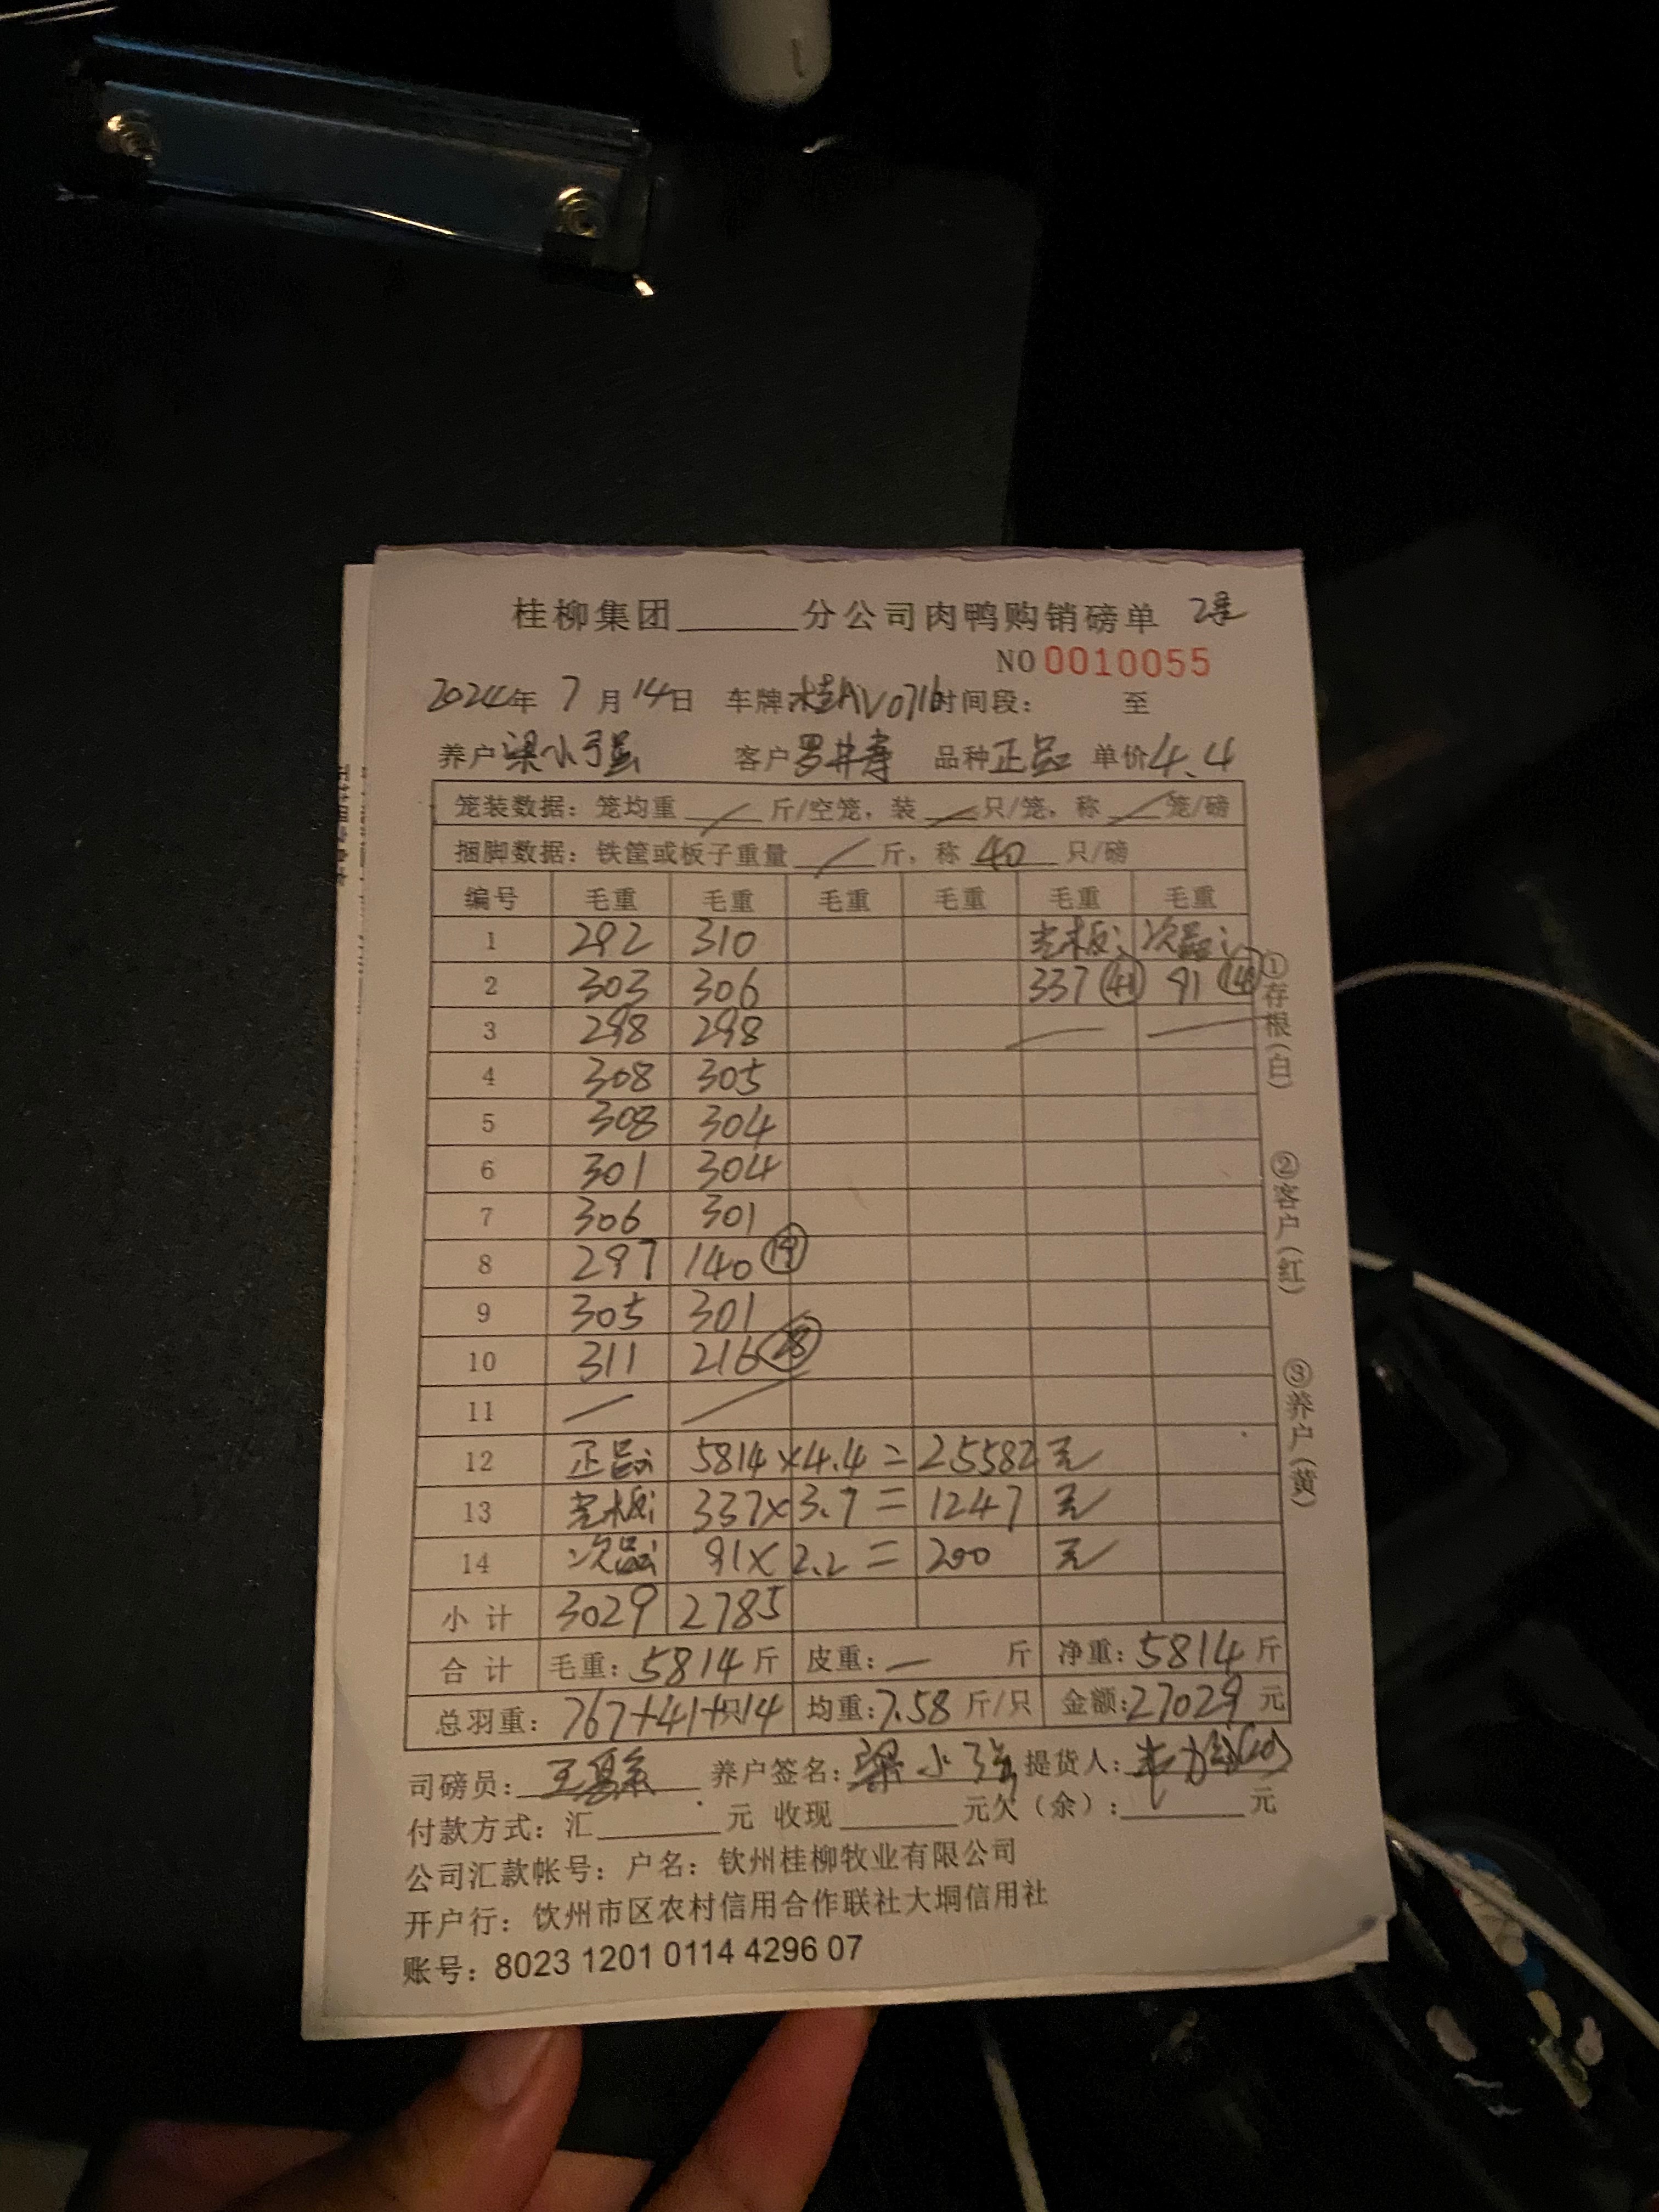 桂柳集团______分公司肉鸭购销磅单
NO 0010055
2024年 7 月 14日 车牌桂AV0716时间段: 至
养户梁小强 客户罗井寿 品种正品 单价4.4
笼装数据: 笼均重 / 斤/空笼, 装 / 只/笼, 称 / 笼/磅
捆脚数据: 铁筐或板子重量 / 斤, 称 40 只/磅
编号 毛重 毛重 毛重 毛重 毛重 毛重
1 292 310 老板: 次品:
2 303 306 337 (41) 91 (14)
3 298 298 — —
4 308 305
5 308 304
6 301 304
7 306 301
8 297 140 (19)
9 305 301
10 311 216 (28)
11 / /
12 正品: 5814 × 4.4 = 25582 元
13 337 × 3.7 = 1247 元
14 次品: 91 × 2.2 = 200 元
小计 3029 2785
合计 毛重: 5814 斤 皮重: — 斤 净重: 5814 斤
总羽重: 767+41+只14 均重: 7.58 斤/只 金额: 27029 元
司磅员: 养户签名: 梁小强 提货人:
付款方式: 汇______元 收现______元欠(余):______元
公司汇款帐号: 户名: 钦州桂柳牧业有限公司
开户行: 钦州市区农村信用合作联社大垌信用社
账号: 8023 1201 0114 4296 07
①存根(白)
②客户(红)
③养户(黄)